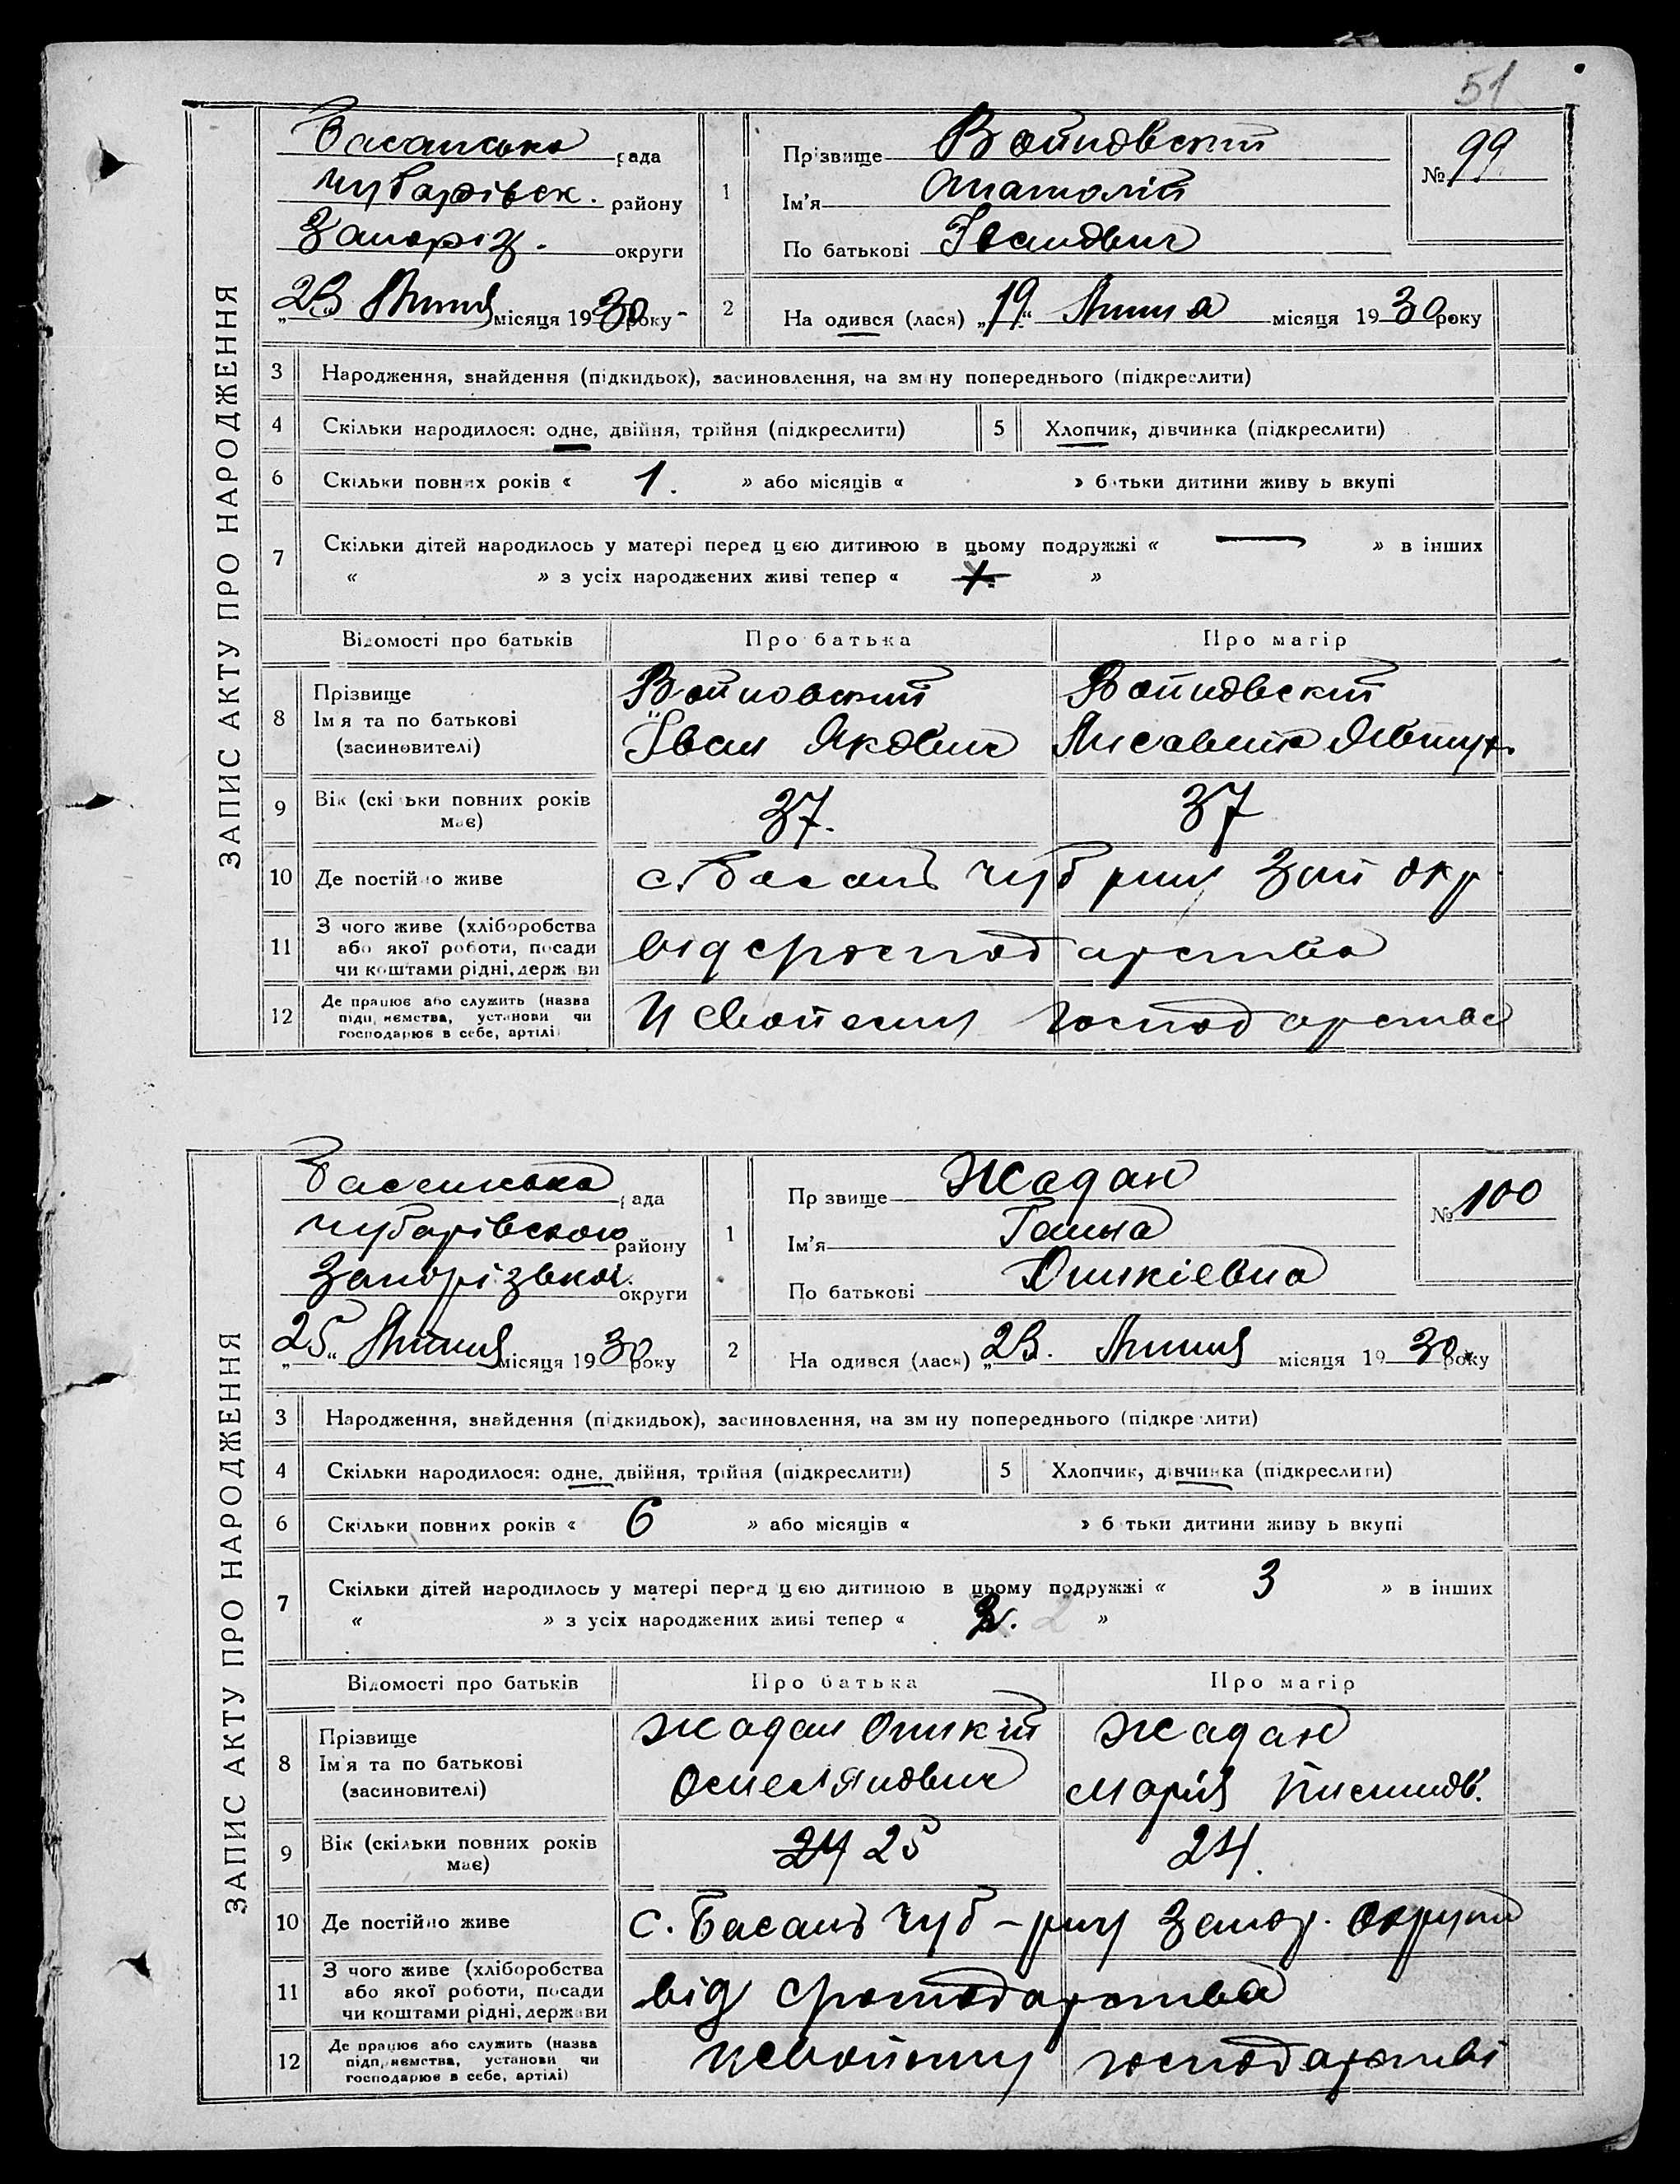 51
ЗАПИС АКТУ ПРО НАРОДЖЕННЯ
Басанська рада
Чубарівск. району
Запоріз. округи
„23 Липня місяця 1930 року -
1 Прізвище Войновский
Ім'я Анатолій
По батькові Іванович
№ 99
2 На одився (лася) „19“ Липня місяця 1930 року
3 Народження, знайдення (підкидьок), засиновлення, на зміну попереднього (підкреслити)
4 Скільки народилося: одне, двійня, трійня (підкреслити)
5 Хлопчик, дівчинка (підкреслити)
6 Скільки повних років « 1. » або місяців « » батьки дитини живу ь вкупі
7 Скільки дітей народилось у матері перед цією дитиною в цьому подружжі « — » в інших
« » з усіх народжених живі тепер « 1. »
Відомості про батьків Про батька Про матір
8 Прізвище
Ім я та по батькові
(засиновителі)
Войновский
Іван Якович
Войновский
Лисавета Явтух.
9 Вік (скільки повних років
має)
37.
37
10 Де постійно живе
с. Басань Чуб р-ну Зап окр
11 З чого живе (хліборобства
або якої роботи, посади
чи коштами рідні, держави
від с господарства
12 Де працює або служить (назва
підприємства, установи чи
господарює в себе, артілі)
господарстві
ЗАПИС АКТУ ПРО НАРОДЖЕННЯ
Басанська рада
Чубарівского району
Запорізької округи
„25“ Липня місяця 1930 року
1 Пр звище Жадан
Ім'я Ганна
По батькові Оникіевна
№ 100
2 На одився (лася) „23. Липня місяця 1930 року
3 Народження, знайдення (підкидьок), засиновлення, на зм ну попереднього (підкреслити)
4 Скільки народилося: одне, двійня, трійня (підкреслити)
5 Хлопчик, дівчинка (підкреслити)
6 Скільки повних років « 6 » або місяців « » б тьки дитини живу ь вкупі
7 Скільки дітей народилось у матері перед цією дитиною в цьому подружжі « 3 » в інших
« » з усіх народжених живі тепер « 2 »
Відомості про батьків Про батька Про матір
8 Прізвище
Ім'я та по батькові
(засиновителі)
Жадан Оникій
Омелянович
Жадан
Марія
9 Вік (скільки повних років
має)
24 25
24.
10 Де постійно живе
с. Басань Чуб - р-ну Запор. округи
11 З чого живе (хліборобства
або якої роботи, посади
чи коштами рідні, держави
від с господарства
12 Де працює або служить (назва
підприємства, установи чи
господарює в себе, артілі)
у свойому господарстві